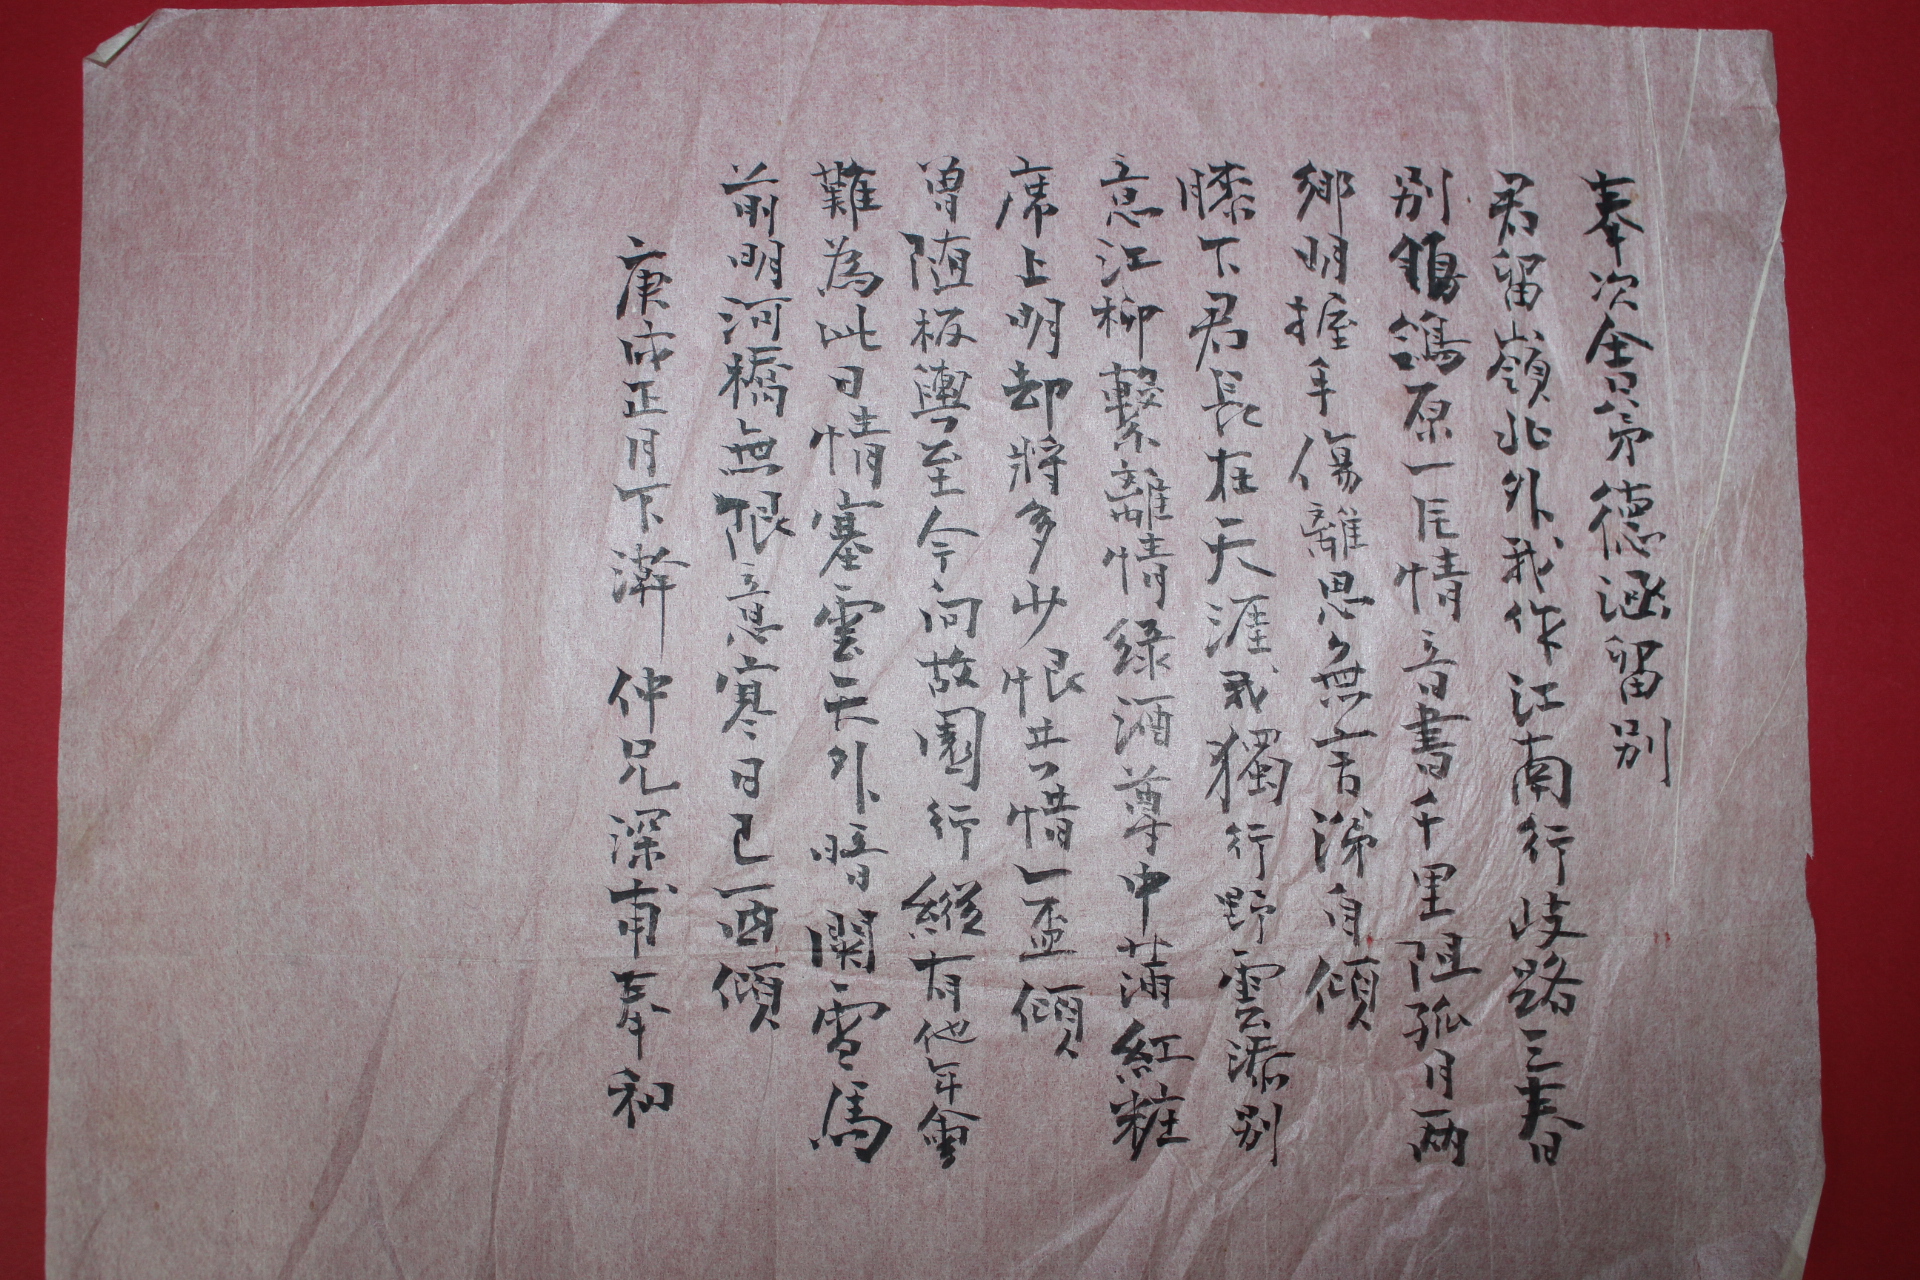 奉次舍弟德涵留別
君留嶺北外我作江南行岐路三春
別鴒原一片情音書千里阻孤月兩
鄉明握手傷離思無言涕自傾
膝下君長在天涯我獨行野雲添別
意江柳繫離情綠酒尊中滿紅粧
席上明却將多少恨共惜一盃傾
曾随板輿至今向故園行縱有他年會
難為此日情塞雲天外暗關雪馬
前明河橋無限意寒日已西傾
庚戌正月下澣 仲兄深甫奉和